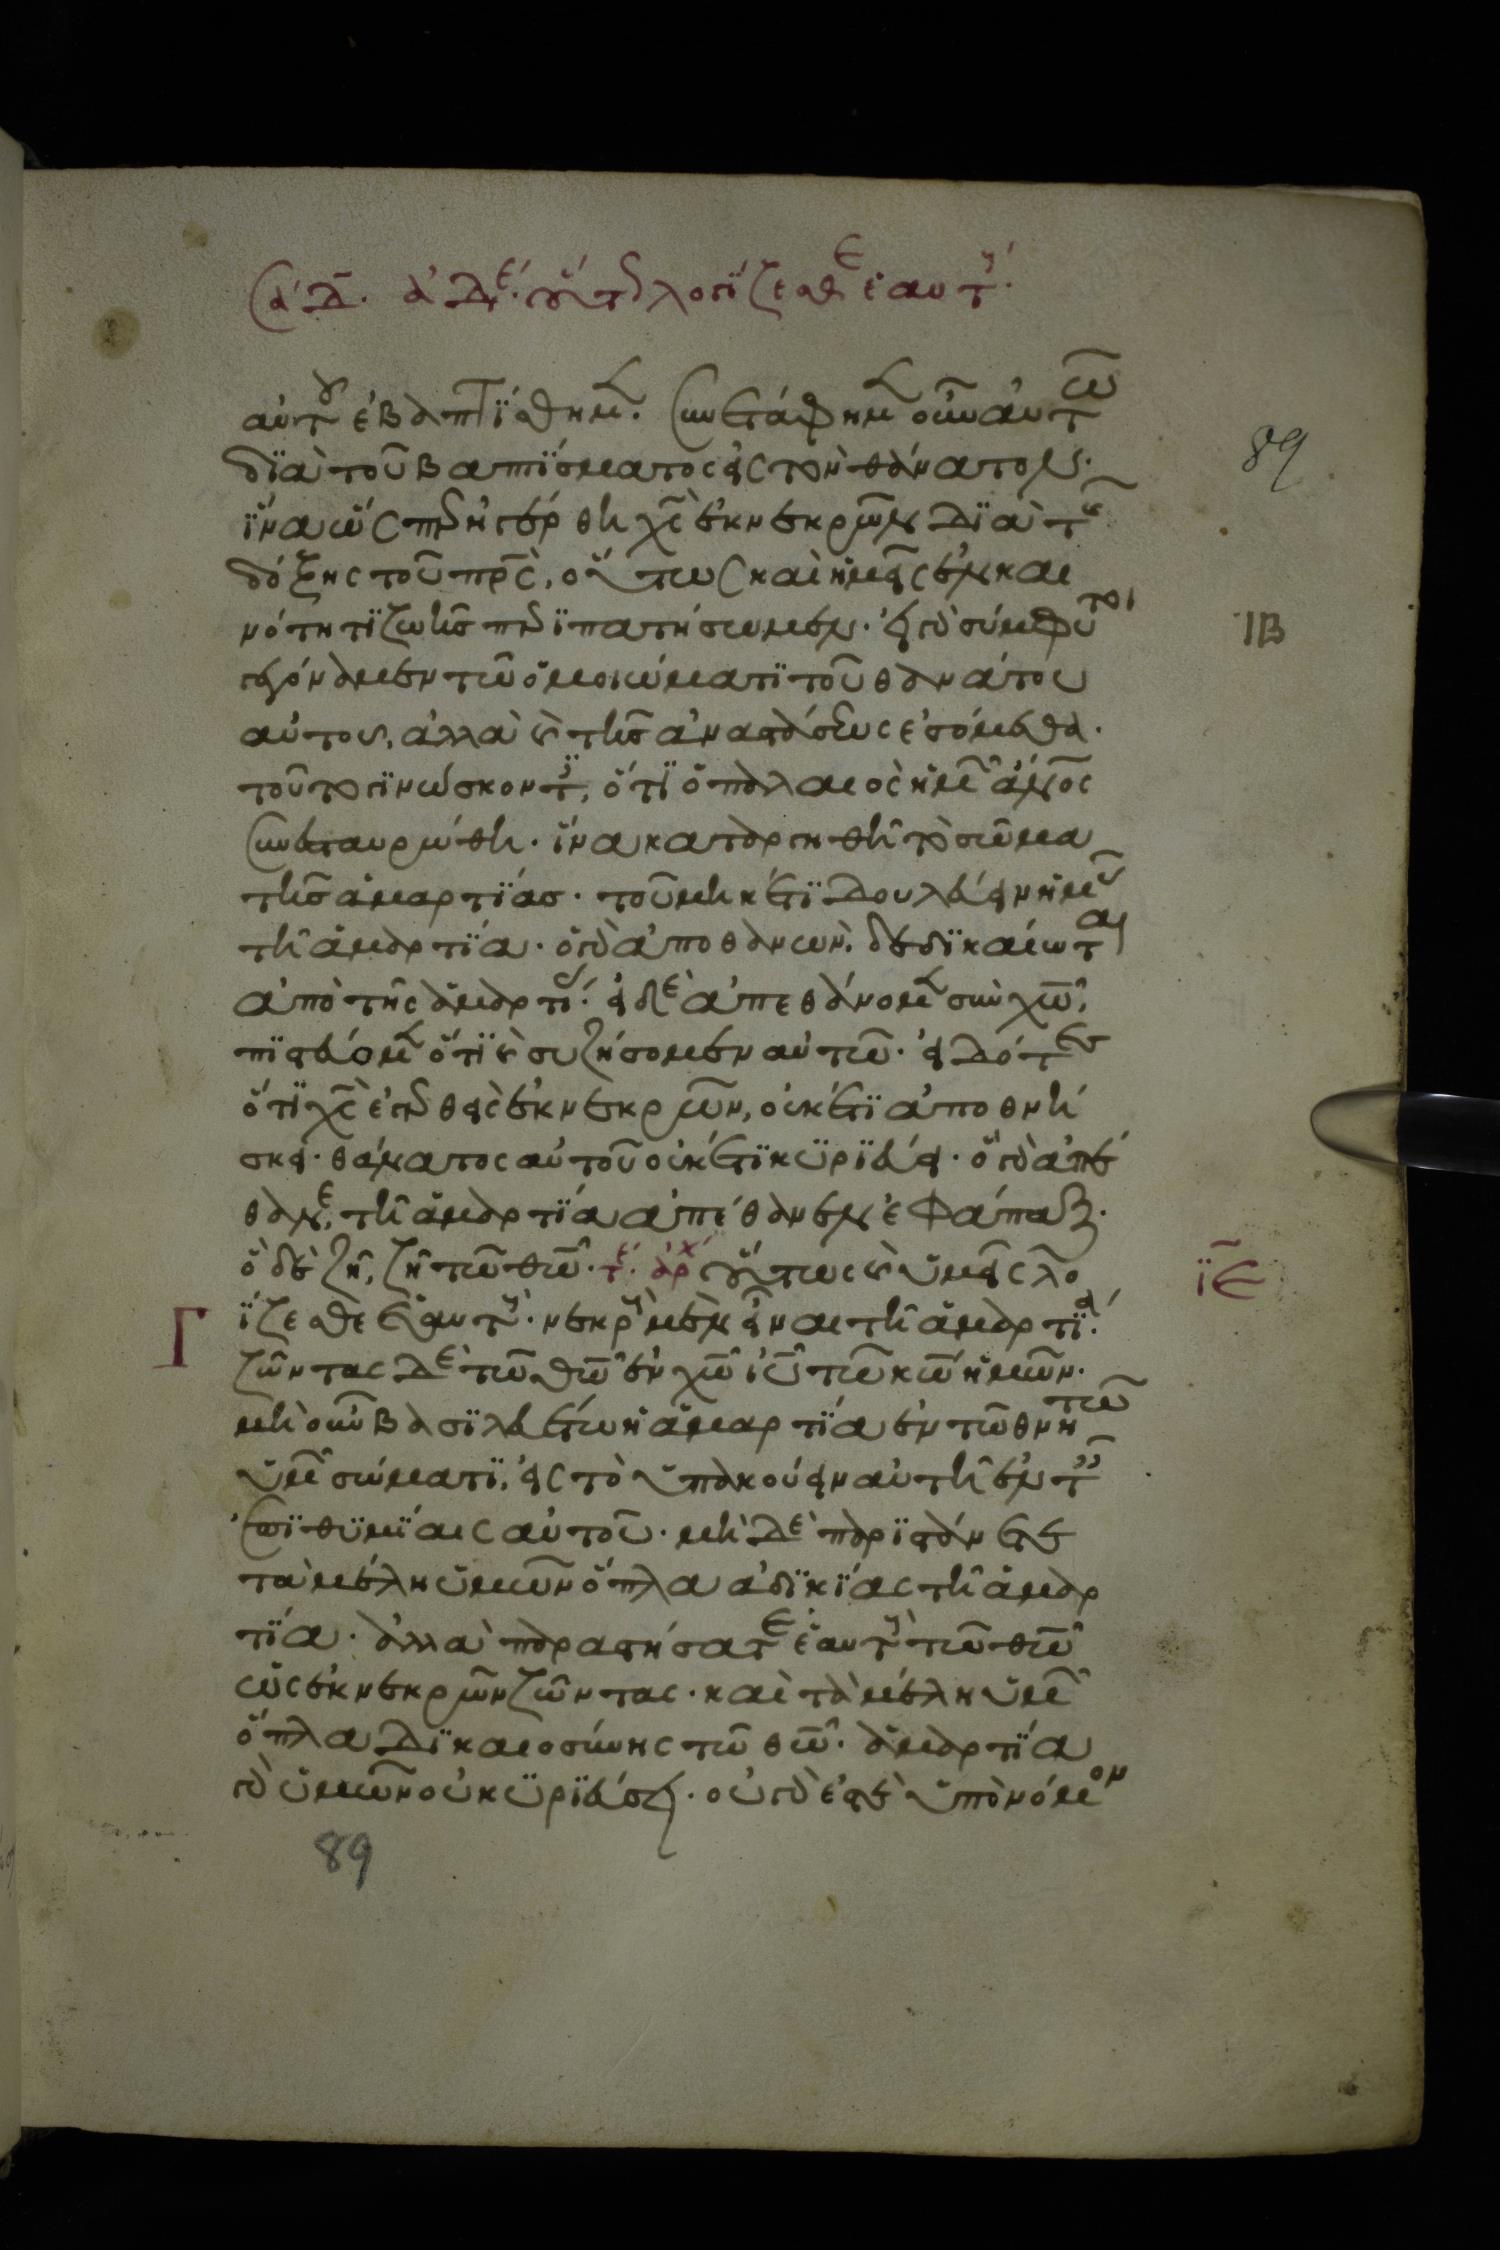 ἀδελφοί, οὕτω λογίζεσθε ἑαυτούς·
αὐτοῦ ἐβαπτίσθημεν. συνετάφημεν οὖν αὐτῶ
διὰ τοῦ βαπτίσματος εἰς τὸν θάνατον.
ἵνα ὥσπερ ἠγέρθη χς ἐκ νεκρῶν διὰ τῆς
δόξης τοῦ πρς, οὕτως καὶ ἡμεῖς ἐν και
νότητι ζωῆς περιπατήσωμεν. εἰ γὰρ σύμφυτοι
γεγόναμεν τῶ ὁμοιώματι τοῦ θανάτου
αὐτοῦ, ἀλλὰ καὶ τῆς ἀναστάσεως ἐσόμεθα.
τοῦτο γινώσκοντες, ὅτι ὁ παλαιὸς ἡμῶν ἄνος
συνεσταυρώθη. ἵνα καταργηθῆ τὸ σῶμα
τῆς ἁμαρτίας. τοῦ μηκέτι δουλεύειν ἡμᾶς
τῆ ἁμαρτία. ὁ γὰρ ἀποθανὼν, δεδικαίωται
ἀπὸ τῆς ἁμαρτίας. εἰ δὲ ἀπεθάνομεν σὺν χω,
πιστεύομεν ὅτι καὶ συζήσομεν αὐτῶ. εἰδότες
ὅτι χς ἐγερθεὶς ἐκ νεκρῶν, οὐκέτι ἀποθνή
σκει. θάνατος αὐτοῦ οὐκέτι κυριεύει. ὃ γὰρ ἀπέ
θανε, τῆ ἁμαρτία ἀπέθανεν ἐφάπαξ.
ὃ δὲ ζῆ, ζῆ τῶ θω. τε. ἀρχ οὕτως καὶ ὑμεῖς λο
ΙΒ
ιε
Γ
γίζεσθε ἑαυτοὺς νεκροὺς μὲν εἶναι τῆ ἁμαρτία.
ζῶντας δὲ τῶ θω ἐν χω ιυ τῶ κω ἡμῶν.
μὴ οὖν βασιλευέτω ἡ ἁμαρτία ἐν τῶ θνητῶ
ὑμῶν σώματι, εἰς τὸ ὑπακούειν αὐτῆ ἐν ταῖς
ἐπιθυμίαις αὐτοῦ. μὴ δὲ παριστάνετε
τὰ μέλη ὑμῶν ὅπλα ἀδικίας τῆ ἁμαρ
τία. ἀλλὰ παραστήσατε ἑαυτοὺς τῶ θω
ὡς ἐκ νεκρῶν ζῶντας. καὶ τὰ μέλη ὑμῶν
ὅπλα δικαιοσύνης τῶ θω. ἁμαρτία
γὰρ ὑμῶν οὐ κυριεύσει. οὐ γάρ ἐστε ὑπὸ νόμον
89
89